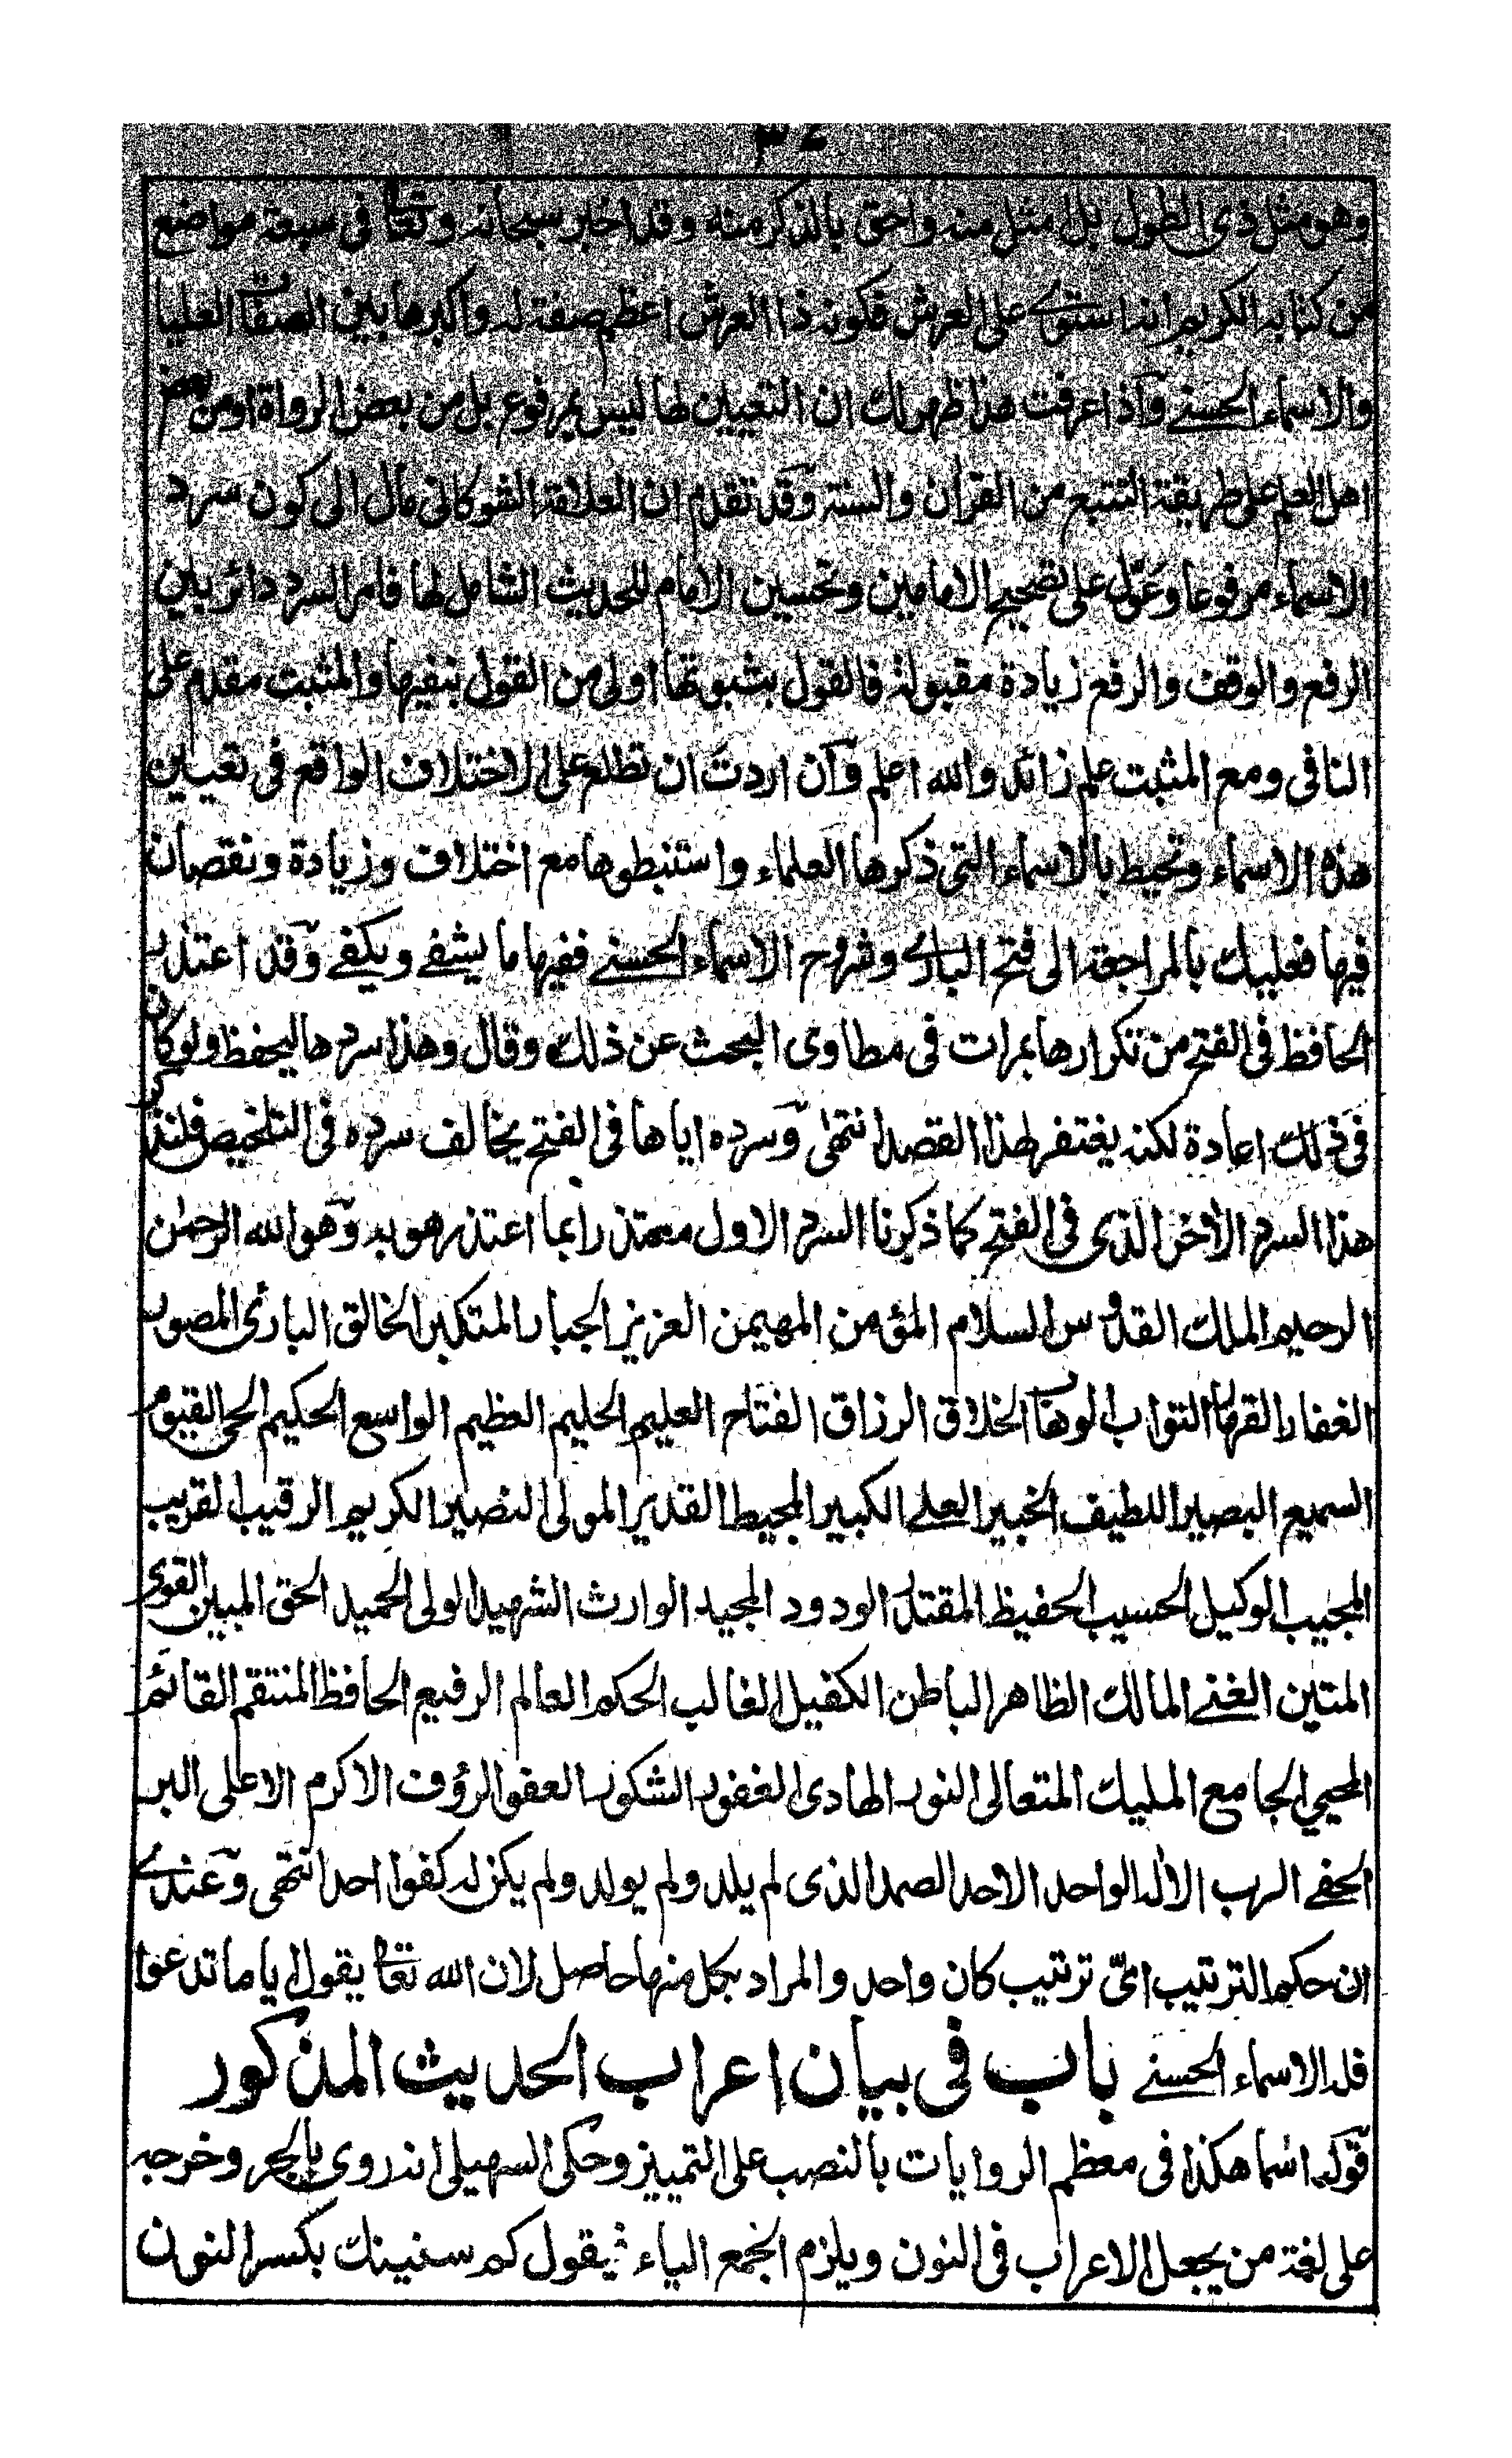 ٣٤
وهو مثل ذى الطول بل امثل منه واحق بالذكر منه وقد اخبر سبحانه وتعا فى سبعة مواضع
من كتابه الكريم انه استوى على العرش فكونه ذا العرش اعظم صفة له واكبرها بين الصفات العليا
والاسماء الحسنے وآذا عرفت هذا ظهر لك ان التعيين لها ليس بمرفوع بل من بعض الرواة او من بعض
اهل العلم على طريقة التتبع من القرآن والسنة وقد تقدم ان العلامة الشوكانى مال الى كون سرد
الاسماء مرفوعا وعوّل على تصحيح الامامين وتحسين الامام للحديث الشامل لها فامر السرد دائر بين
الرفع والوقف والرفع زيادة مقبولة فالقول بثبوتها اولى من القول بنفيها والمثبت مقدم على
النافى ومع المثبت علم زائد والله اعلم وآن اردت ان تطلع على الاختلاف الواقع فى تعيين
هذه الاسماء وتحيط بالاسماء التى ذكرها العلماء واستنبطوها مع اختلاف وزيادة ونقصان
فيها فعليك بالمراجعة الى فتح البارے وشروح الاسماء الحسنے ففيها ما يشفے ويكفے وقد اعتذر
الحافظ فى الفتح من تكرارها بمرات فى مطاوى البحث عن ذلك وقال وهذا سردها ليحفظ ولو كان
فى ذلك اعادة لكنه يغتفر لهذا القصد انتهى وسرده اياها فى الفتح يخالف سرده فى التلخيص فلنذكر
هذا السرد الأخر الذى فى الفتح كما ذكرنا السرد الاول معتذرا بما اعتذر هو به وهو الله الرحمٰن
الرحيم الملك القدوس السلام المؤمن المهيمن العزيز الجبار المتكبر الخالق البارئ المصور
الغفار القهار التواب الوهاب الخلاق الرزاق الفتاح العليم الحليم العظيم الواسع الحكيم الحى القيوم
السميع البصير اللطيف الخبير العلے الكبير المحيط القدير المولى النصير الكريم الرقيب القريب
المجيب الوكيل الحسيب الحفيظ المقتدر الودود المجيد الوارث الشهيد الولى الحميد الحق المبين القوى
المتين الغنے المالك الظاهر الباطن الكفيل الغالب الحكم العالم الرفيع الحافظ المنتقم القائم
المحيي الجامع المليك المتعالى النور الهادى الغفور الشكور العفو الرؤف الاكرم الاعلى البر
الحفے الرب الالٰه الواحد الاحد الصمد الذى لم يلد ولم يولد ولم يكن له كفوا احد انتهى وعندے
ان حكم الترتيب اىّ ترتيب كان واحد والمراد بكل منها حاصل لان الله تعا يقول ايا ما تدعوا
فله الاسماء الحسنے باب فى بيان اعراب الحديث المذكور
قوله اسما هكذا فى معظم الروايات بالنصب على التمييز وحكى السهيلى انه روى بالجر وخرجه
على لغة من يجعل الاعراب فى النون ويلزم الجمع الياء فيقول كم سنينك بكسر النون